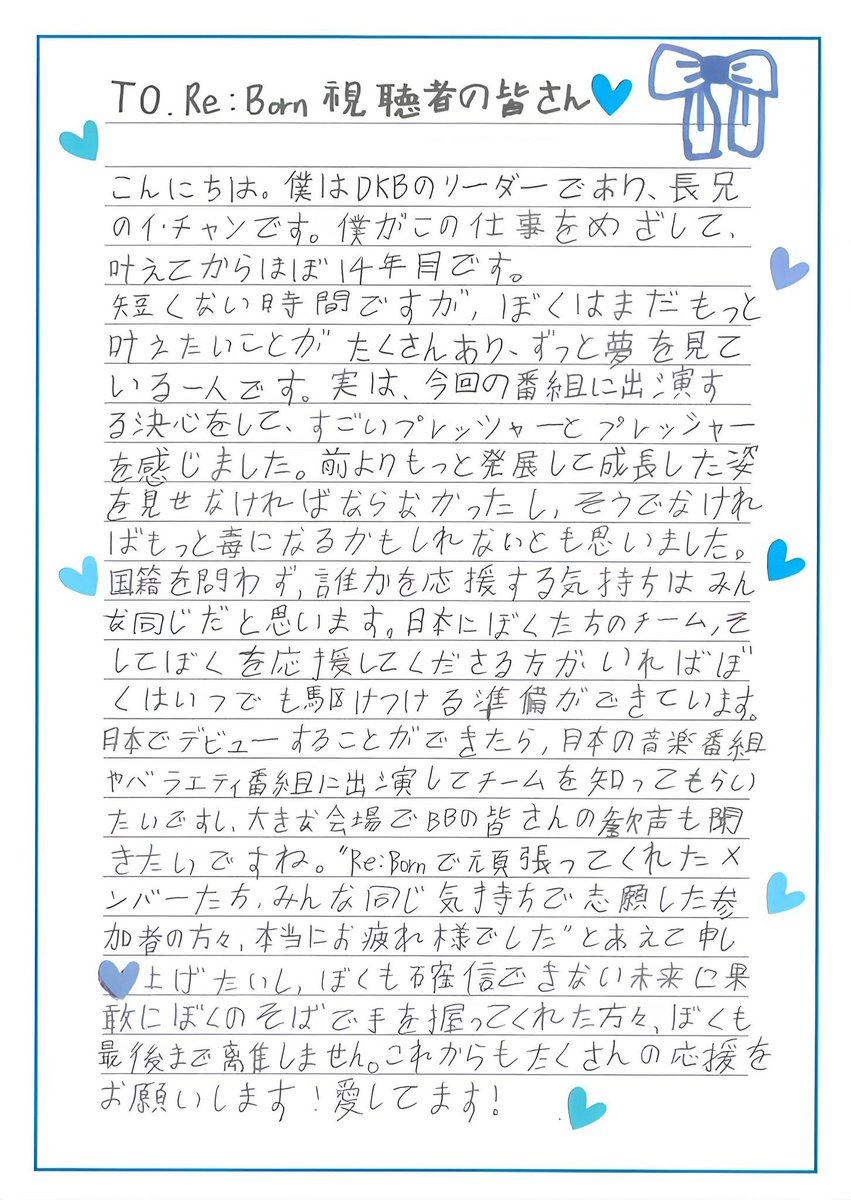 TO. Re:Born 視聴者の皆さん
こんにちは。僕はDKBのリーダーであり、長兄
のイ・チャンです。僕がこの仕事をめざして、
叶えてからほぼ14年目です。
短くない時間ですが、ぼくはまだもっと
叶えたいことがたくさんあり、ずっと夢を見て
いる一人です。実は、今回の番組に出演す
る決心をして、すごいプレッツャーとプレッシャー
を感じました。前よりもっと発展して成長した姿
を見せなければならなかったし、そうでなけれ
ばもっと毒になるかもしれないとも思いました。
国籍を問わず、誰かを応援する気持ちはみん
な同じだと思います。日本にぼくたちのチーム、そ
してぼくを応援してくださる方がいればぼ
くはいつでも駆けつける準備ができています。
日本でデビューすることができたら、日本の音楽番組
やバラエティ番組に出演してチームを知ってもらい
たいですし、大きな会場でBBの皆さんの歓声も聞
きたいですね。"Re:Bornで頑張ってくれたメ
ンバーたち、みんな同じ気持ちで志願した参
加者の方々、本当にお疲れ様でした"とあえて申し
上げたいし、ぼくも確信できない未来に果
敢にぼくのそばで手を握ってくれた方々、ぼくも
最後まで離隹しません。これからもたくさんの応援を
お願いします!愛してます!